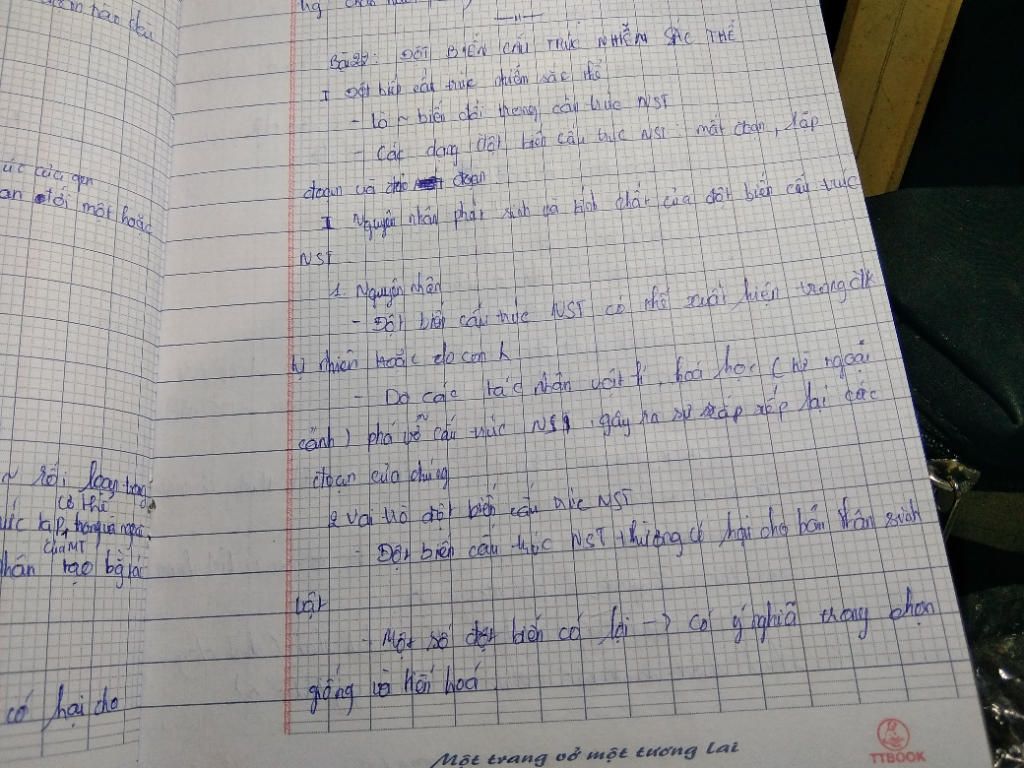 úc của gen
an tới một hoặc
~ rối loạn trong
có thể
chaMT
hân tạo bị
có hại cho
Bài 22: ĐỘT BIẾN CẤU TRÚC NHIỄM SẮC THỂ
I Đột biến cấu trúc nhiễm sắc thể
- Là ~ biến đổi trong cấu trúc NST
- Các dạng đột biến cấu trúc NST: mất đoạn, lặp
đoạn và đảo đoạn
II Nguyên nhân phát sinh và tính chất của đột biến cấu trúc
NST
1. Nguyên nhân
- Đột biến cấu trúc NST có thể xuất hiện trong đk
tự nhiên hoặc do con
- Do các tác nhân vật lí, hoá học (từ ngoại
cảnh) phá vỡ cấu trúc NST, gây ra sự sắp xếp lại các
đoạn của chúng
2 Vai trò đột biến cấu trúc NST
- Đột biến cấu trúc NST thường có hại cho bản thân sinh
vật
- Một số đột biến có lợi -> có ý nghĩa trong chọn
giống và tiến hoá
Một trang vở một tương lai
TTBOOK